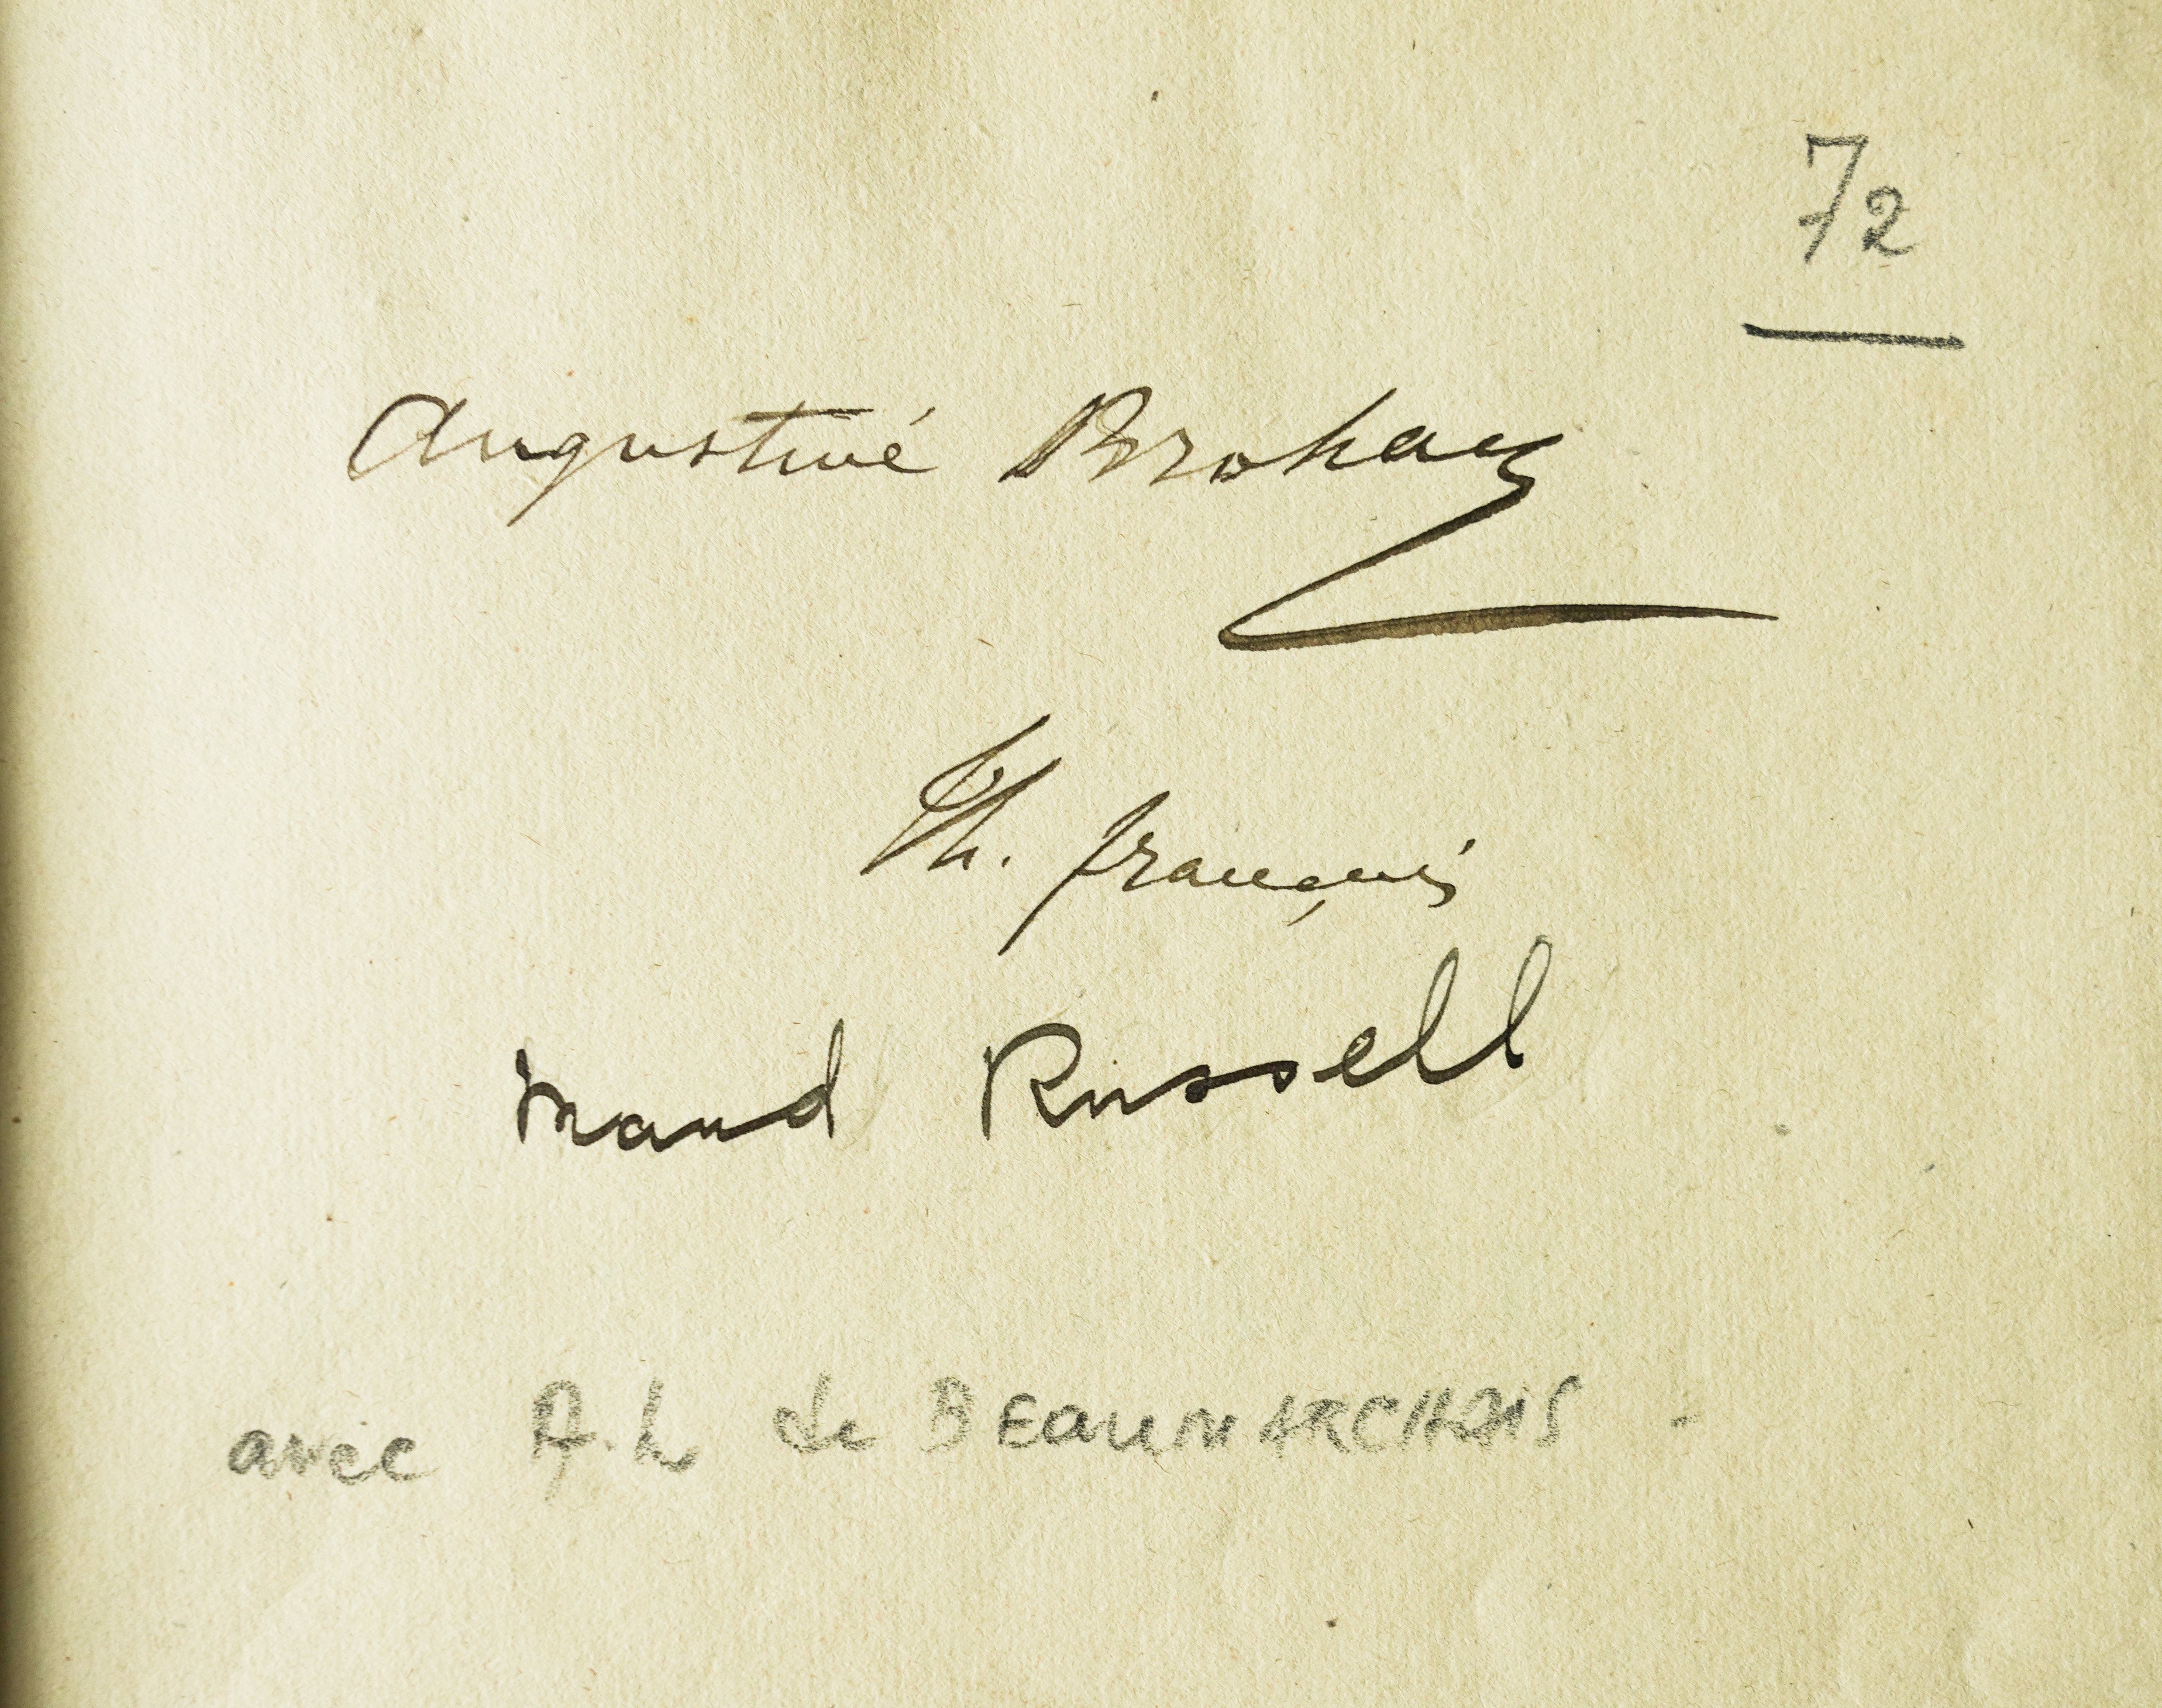 72
Augustine Brohan
Th. français
Maud Russell
avec A. L de BEAUMARCHAIS -